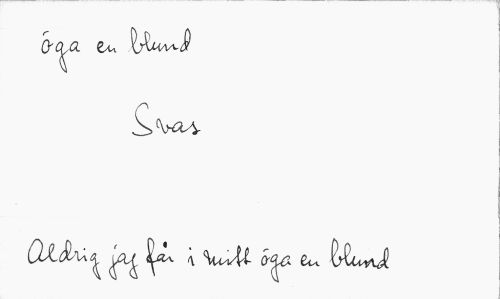 öga en blund
Svas
Aldrig jag får i mitt öga en blund